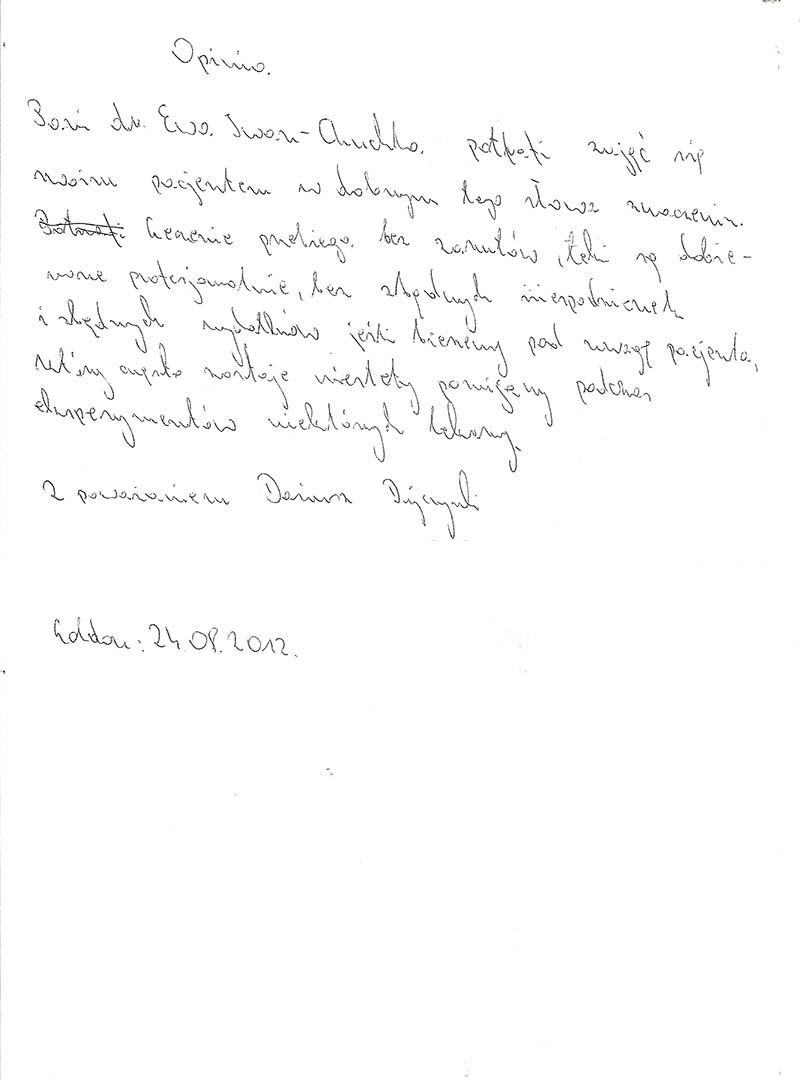 Opinia.
Pani dr. Ewa Iwan-Chuchla potrafi zająć się
swoim pacjentem w dobrym tego słowa znaczeniu.
Potrafi Leczenie przebiega bez zarzutów, leki są dobie-
rane profesjonalnie, bez zbędnych niespodzianek
i zbędnych wydatków jeśli bierzemy pod uwagę pacjenta,
który często zostaje niestety pomięty podczas
eksperymentów niektórych lekarzy.
Z poważaniem Dariusz
24.08.2012.